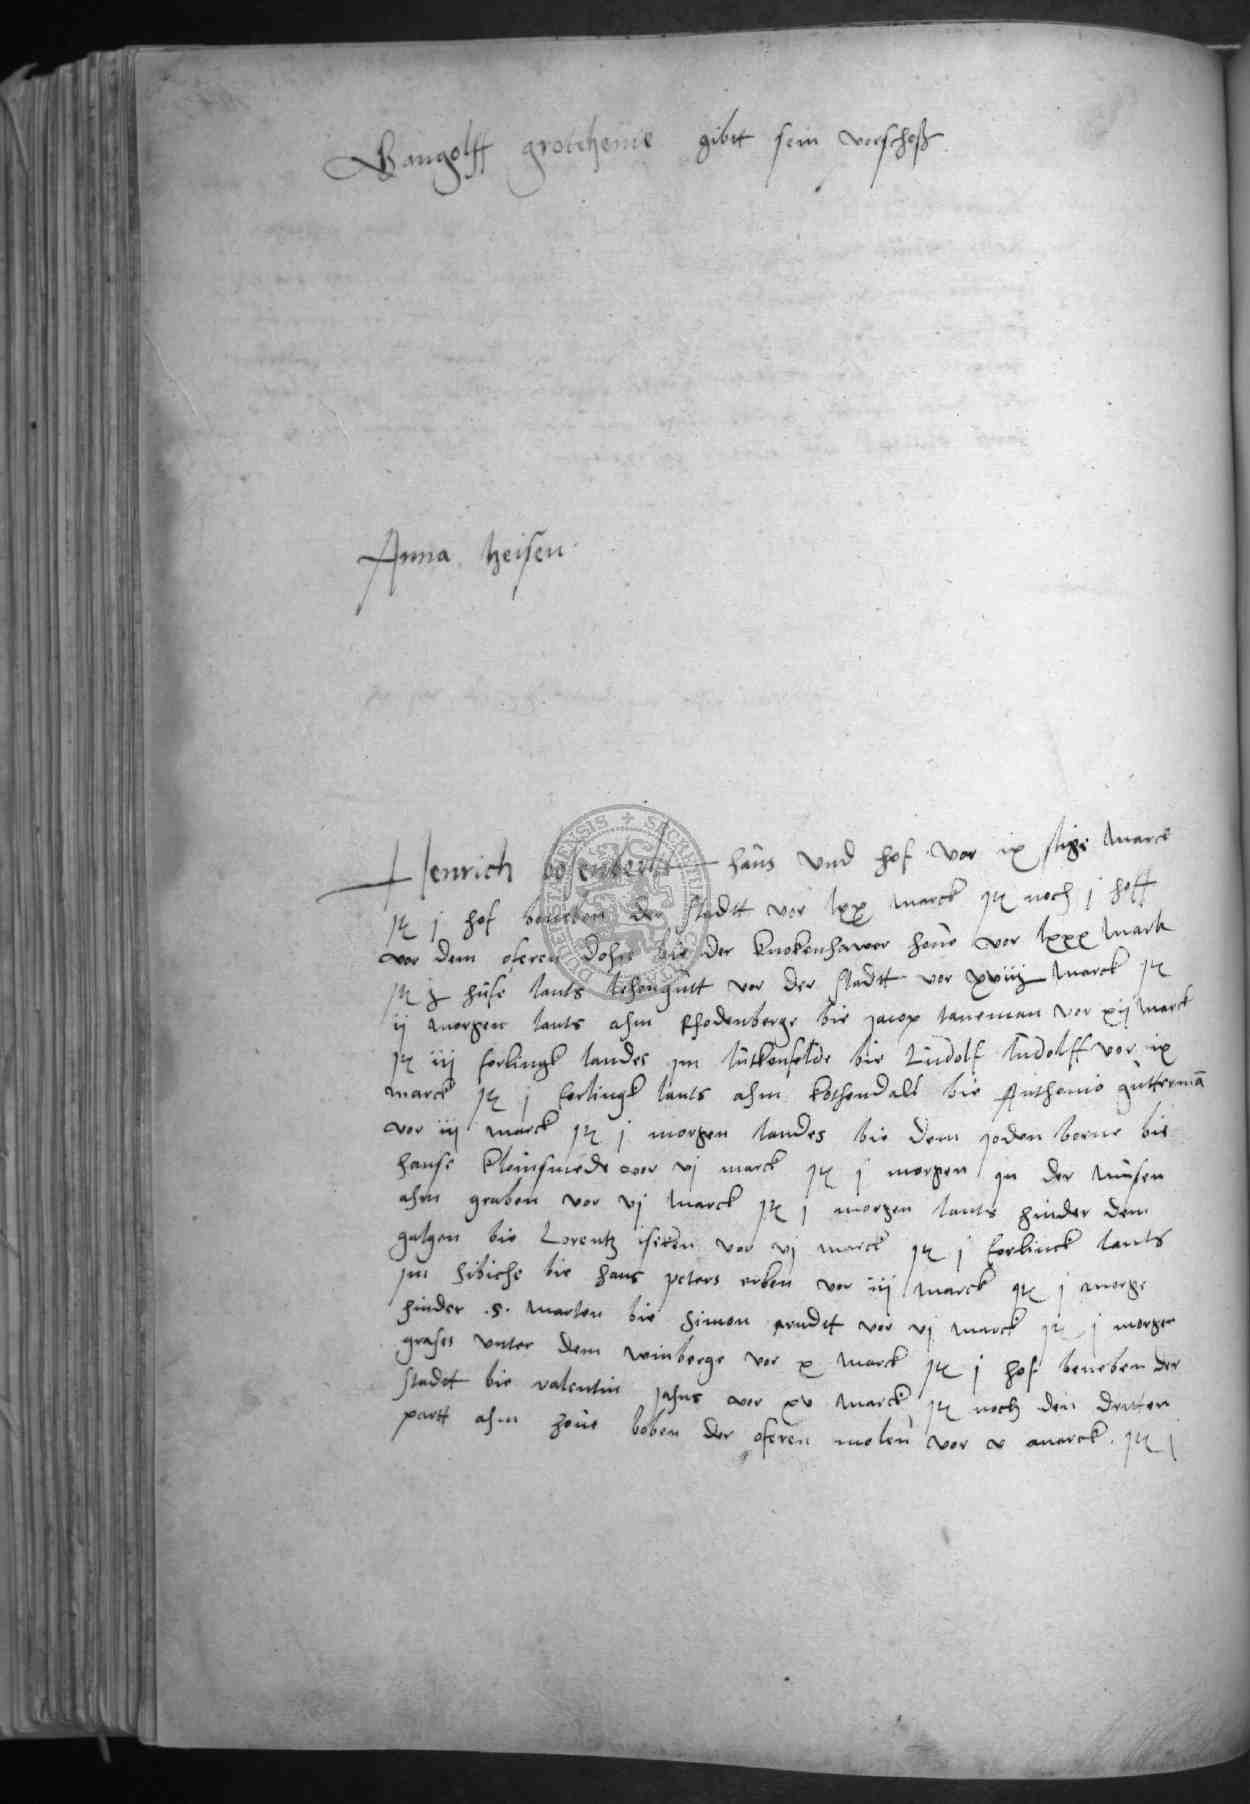 Gangolff grotehenne gibtt sein vorschoß
Anna heisen
Henrich haus vnd hof vor ix stige Marck
Jtem j hof beneben der stadtt vor lxx Marck Jtem noch j hoff
vor dem oferen dohr bie der knokenhawer hove vor lxxx Mark
Jtem hufe lants lehengutt vor der stadtt vor Marck Jtem
ij morgen lants ahm Rhodenberge bie Jacop taneman vor xij Marck
Jtem iij forlingk landes jm lutkenfelde bie Ludolf Ludolff vor ix
marck Jtem j forlingk lants ahm kothendall bie Anthonio gutterman
vor iij marck Jtem j morgen landes bie dem joden borne bie
hanse kleinsmede vor vj marck Jtem j morgen jn der
ahm graben vor vj Marck Jtem j morgen lants hinder dem
galgen bie Lorentz vor vj marck Jtem j forlinck lants
jm sibiche bie hans peters erben vor iij Marck Jtem j morge
hinder .S. Marten bie Simon arndtt vor vj marck Jtem j morgen
grases vnter dem winberge vor x Marck Jtem j hof beneben der
stadtt bie valentin jahns vor xv Marck Jtem noch den dritten
partt ahm hove boben der oferen molen vor v marck. Jtem j